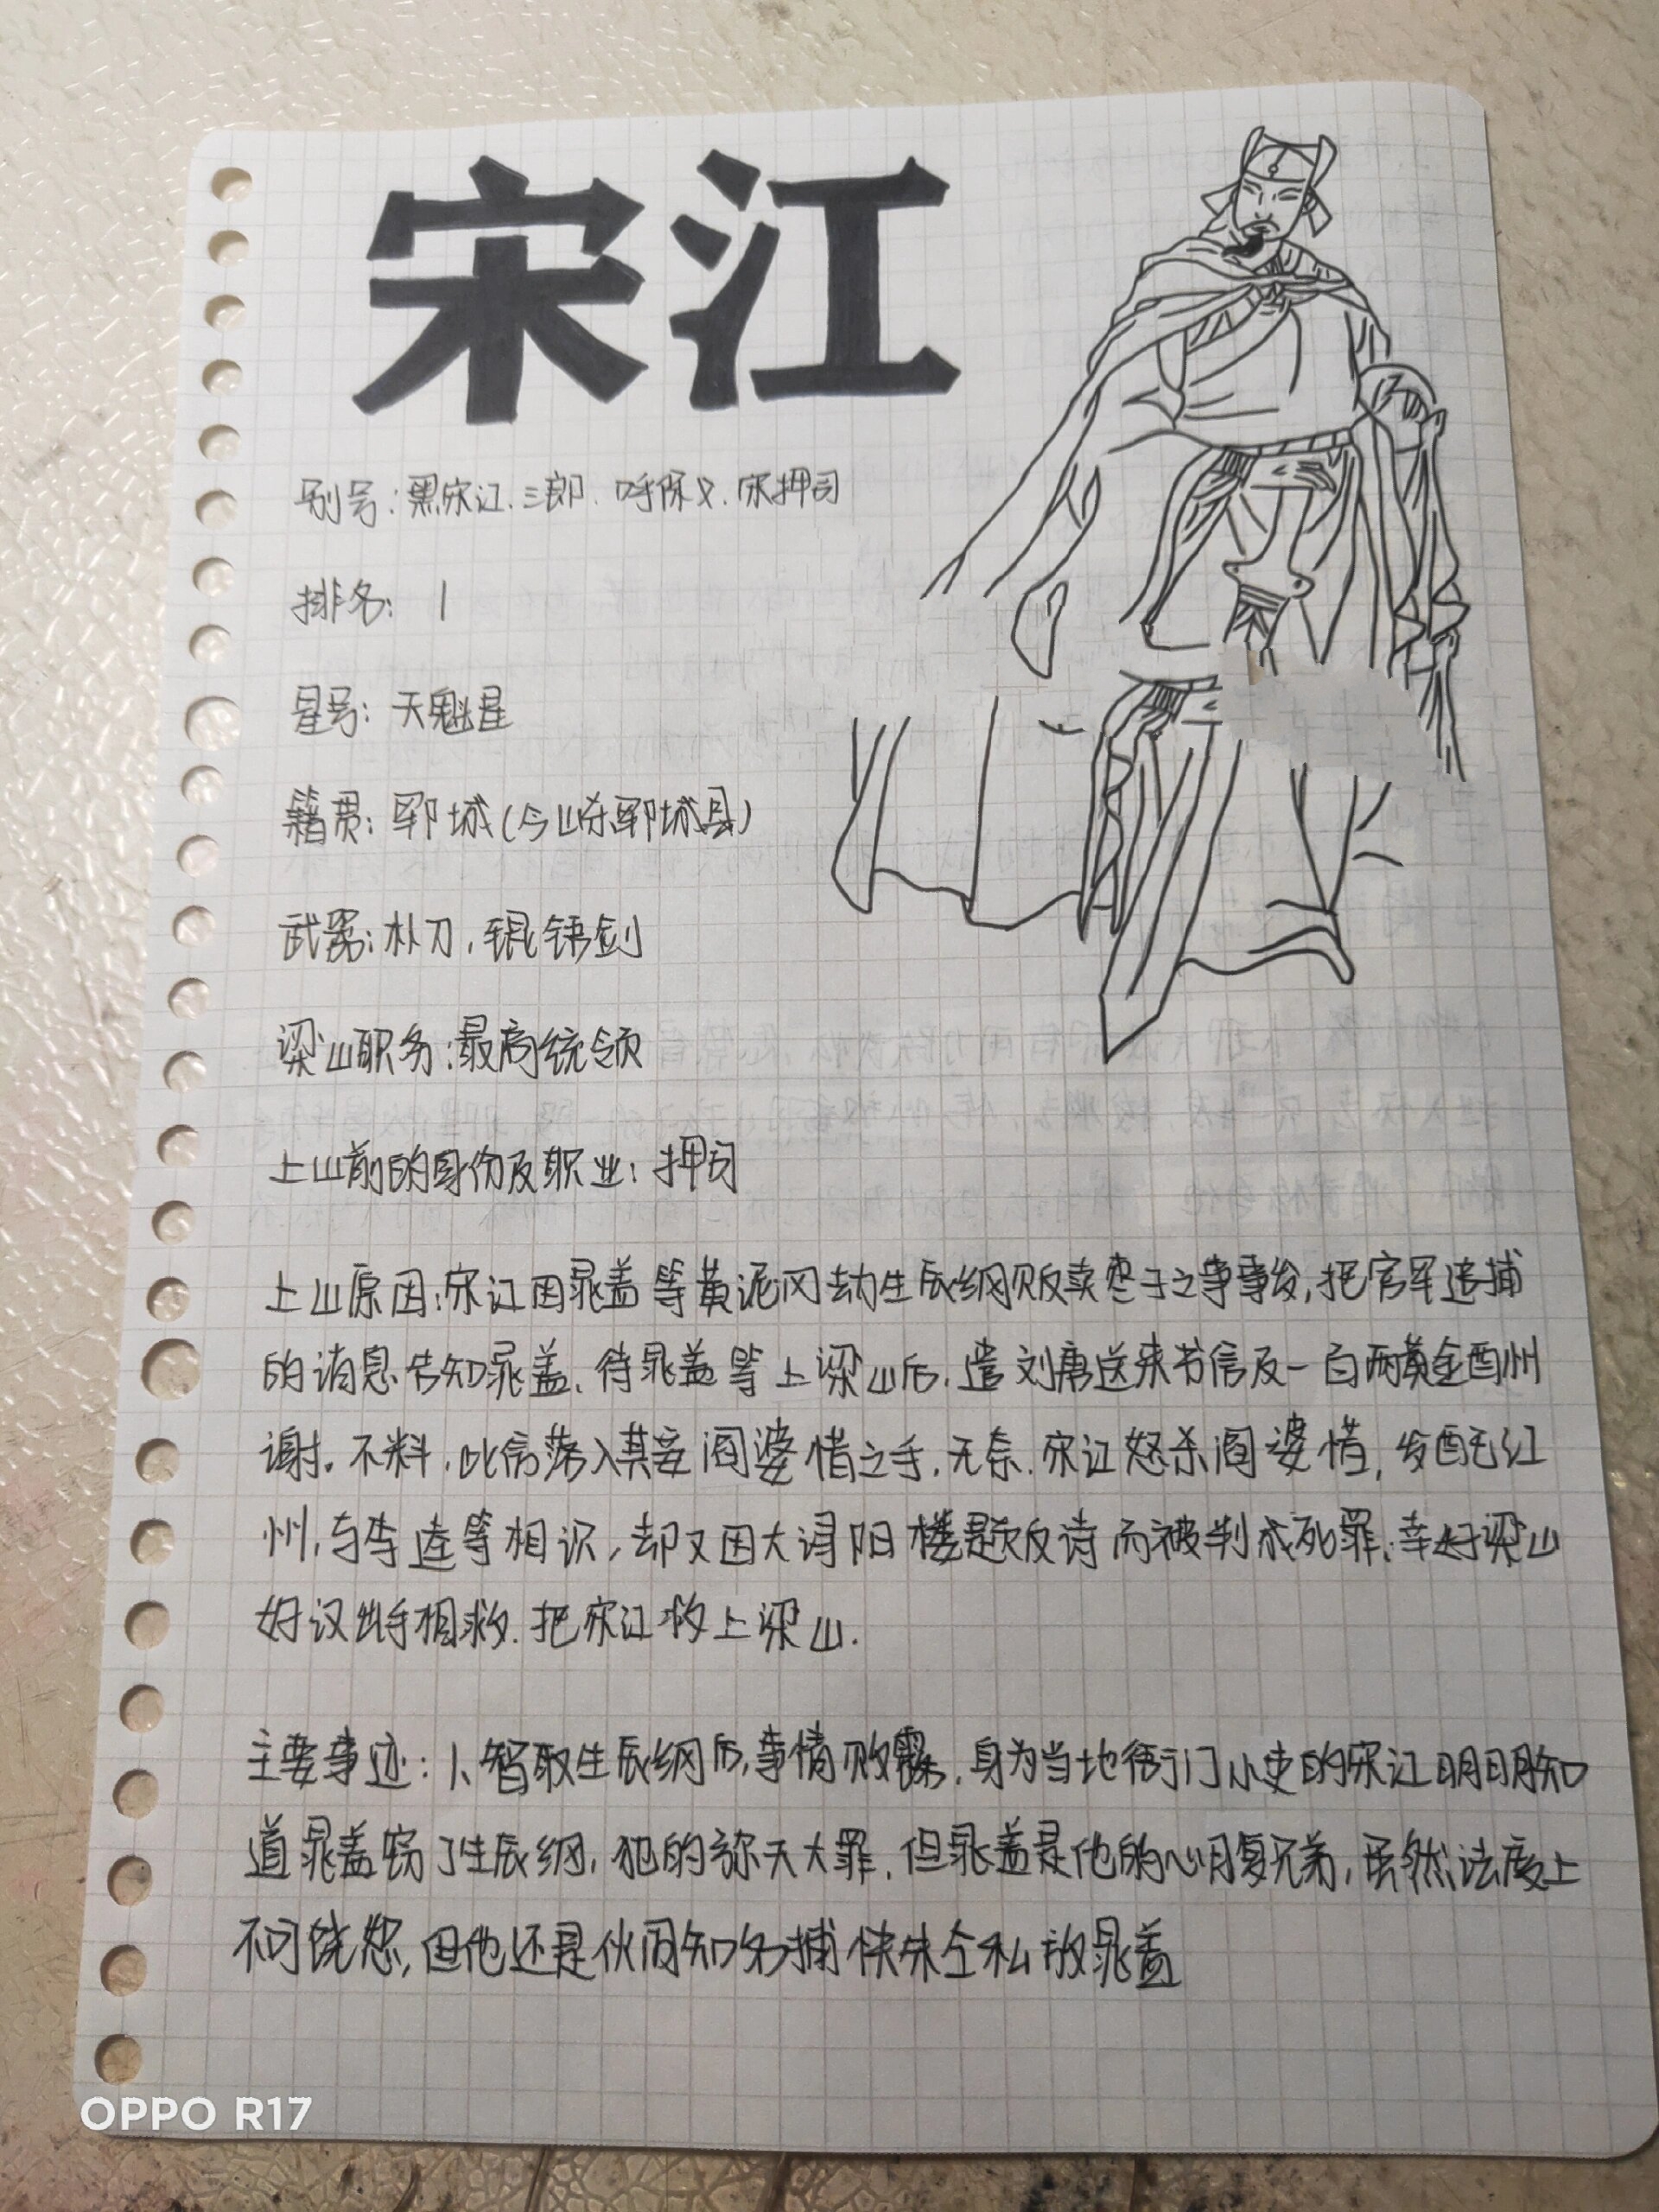 宋江
别号：黑宋江、三郎、呼保义、宋押司
排名：1
星号：天魁星
籍贯：郓城(今山东郓城县)
武器：朴刀，锟铻剑
梁山职务：最高统领
上山前的身份及职业：押司
上山原因：宋江因晁盖等黄泥冈劫生辰纲贩卖枣子之事事发，把官军追捕
的消息告知晁盖，待晁盖等上梁山后，遣刘唐送来书信及一百两黄金酉州
谢。不料，此信落入其妾阎婆惜之手，无奈，宋江怒杀阎婆惜，发配江
州，与李逵等相识，却又因大浔阳楼题反诗而被判成死罪，幸好梁山
好汉出手相救，把宋江救上梁山.
主要事迹：1、智取生辰纲后，事情败露，身为当地衙门小吏的宋江明明知
道晁盖窃了生辰纲，犯的弥天大罪，但晁盖是他的心腹兄弟，虽然法度上
不可饶恕，但他还是伙同知名捕快朱仝私放晁盖
OPPO R17